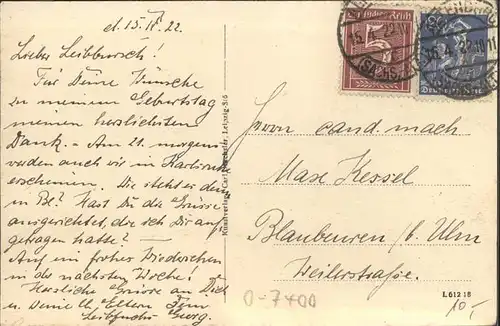 d. 15. IV. 22.
Lieber Leibbursch!
Für Deine Wünsche
zu meinem Geburtstag
meinen herzlichsten
Dank. - Am 21. morgens
werden auch wir in Karlsruhe
erscheinen. Wie steht es denn
in Bl.? Hast Du die Grüsse
ausgerichtet, die ich Dir auf-
getragen hatte? -
Auf ein frohes Wiedersehen
in der nächsten Woche!
Herzliche Grüsse an Dich
u. Deine lb. Eltern Dein
Leibfuchs Georg.
Kunstverlag Carl Leipzig-Stö
Deutsches Reich
5
Deutsches Reich
Herrn cand. mach
Max Kessel
Blaubeuren / b. Ulm
Weilerstraße.
0-7400
L 612 18
10,-